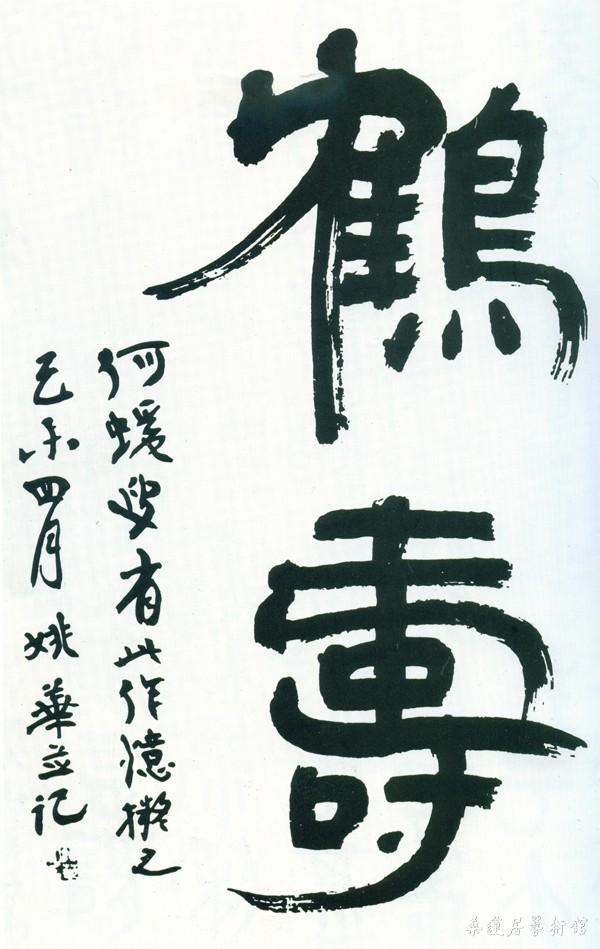 鶴壽
何蝯叟有此作憶擬之
己未四月姚華並记
㷼蓮居藝術館